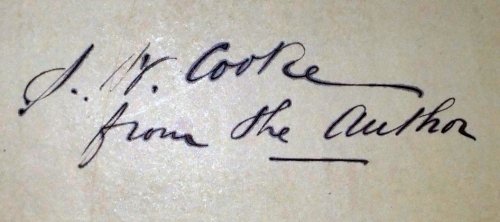 J. W. Cooke
from the Author